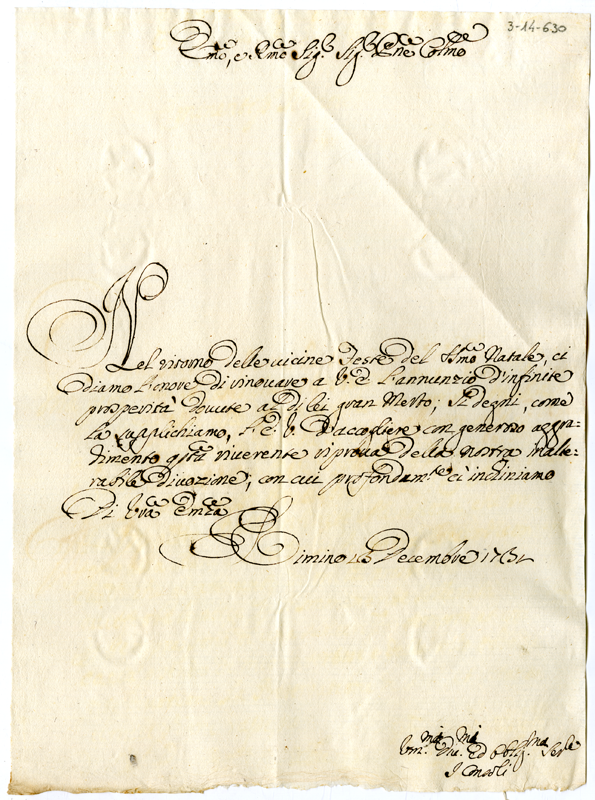 3-14-630
Emo, e Rmo Sig.r Sig.r Pne Colmo
Nel ritorno delle vicine Feste del SSmo Natale, ci
diamo l'onore di rinovare a V. E. l'annunzio d'infinite
prosperità dovute al di lei gran Merto; Si degni, come
la supplichiamo, l'E. V. d'accogliere con generoso aggra-
dimento qsta riverente riprova della nostra inalte-
rabile Divozione; con cui profondamte ci inchiniamo
Di Vra Emza
Rimino Decembre
Ed Obblig.